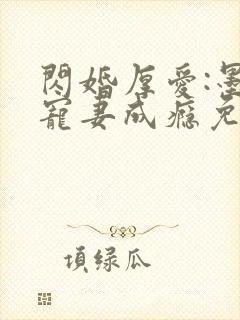 閃婚厚愛:墨
寵妻成癮免
頂綠瓜